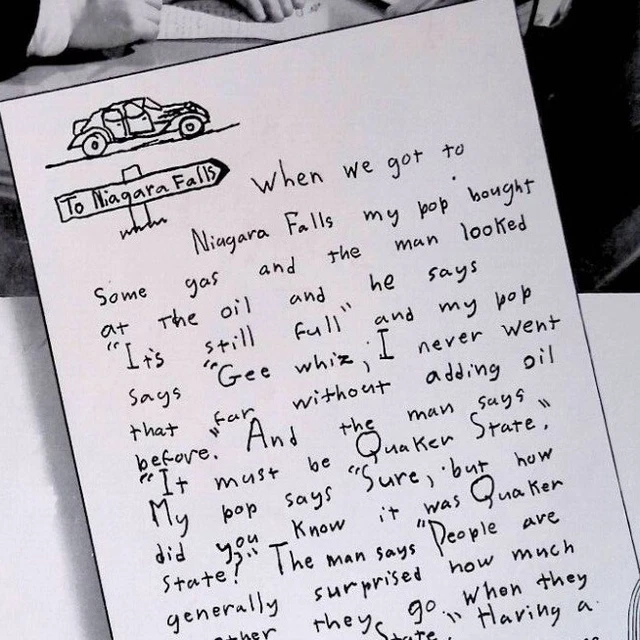 To Niagara Falls
When we got to
Niagara Falls my pop bought
Some gas and the man looked
at The oil and he says
"It's still full" and my pop
says "Gee whiz, I never went
that far without adding oil
before." And the man says
"It must be Quaker State."
My pop says "Sure, but how
did you know it was Quaker
State?" The man says "People are
generally surprised how much
they go." When they
State." Having a